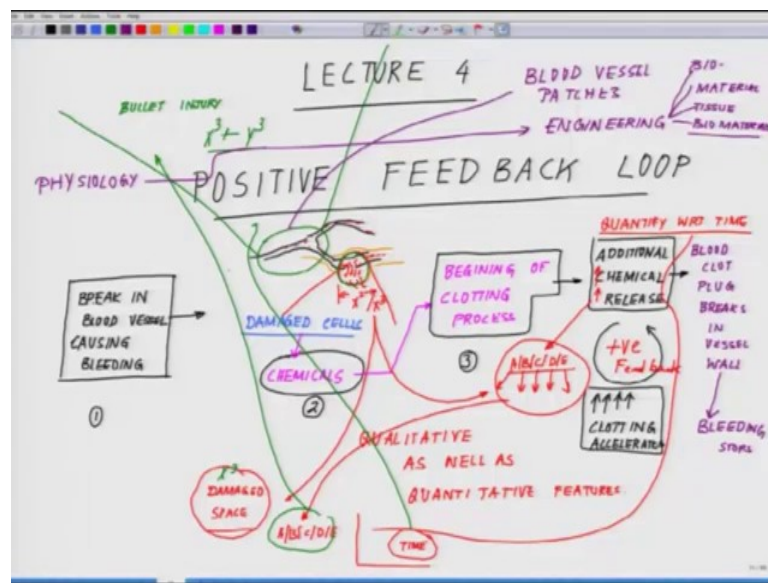 LECTURE 4
BULLET INJURY
BLOOD VESSEL
PATCHES
BIO-
MATERIAL
TISSUE
BIO MATERIAL
ENGINEERING
x³ + y³
PHYSIOLOGY
POSITIVE FEEDBACK LOOP
QUANTIFY WRT TIME
BREAK IN
BLOOD VESSEL
CAUSING
BLEEDING
①
DAMAGED CELLS
CHEMICALS
②
BEGINING OF
CLOTTING
PROCESS
③
ADDITIONAL
CHEMICAL
RELEASE
BLOOD
CLOT
PLUG
BREAKS
IN
VESSEL
WALL
BLEEDING
STOPS
+ve
Feed back
A/B/C/D/E
CLOTTING
ACCELERATOR
QUALITATIVE
AS WELL AS
QUANTITATIVE FEATURES
x³
DAMAGED
SPACE
A/B/C/D/E
TIME